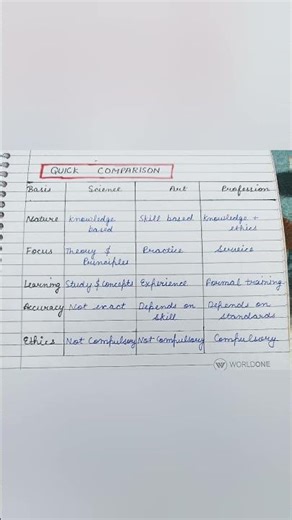 QUICK COMPARISON
Basis Science Art Profession
Nature Knowledge based Skill based Knowledge + ethics
Focus Theory & Principles Practice Service
Learning Study & Concepts Experience Formal training
Accuracy Not exact Depends on skill Depends on standards
Ethics Not Compulsory Not Compulsory Compulsory
WORLDONE